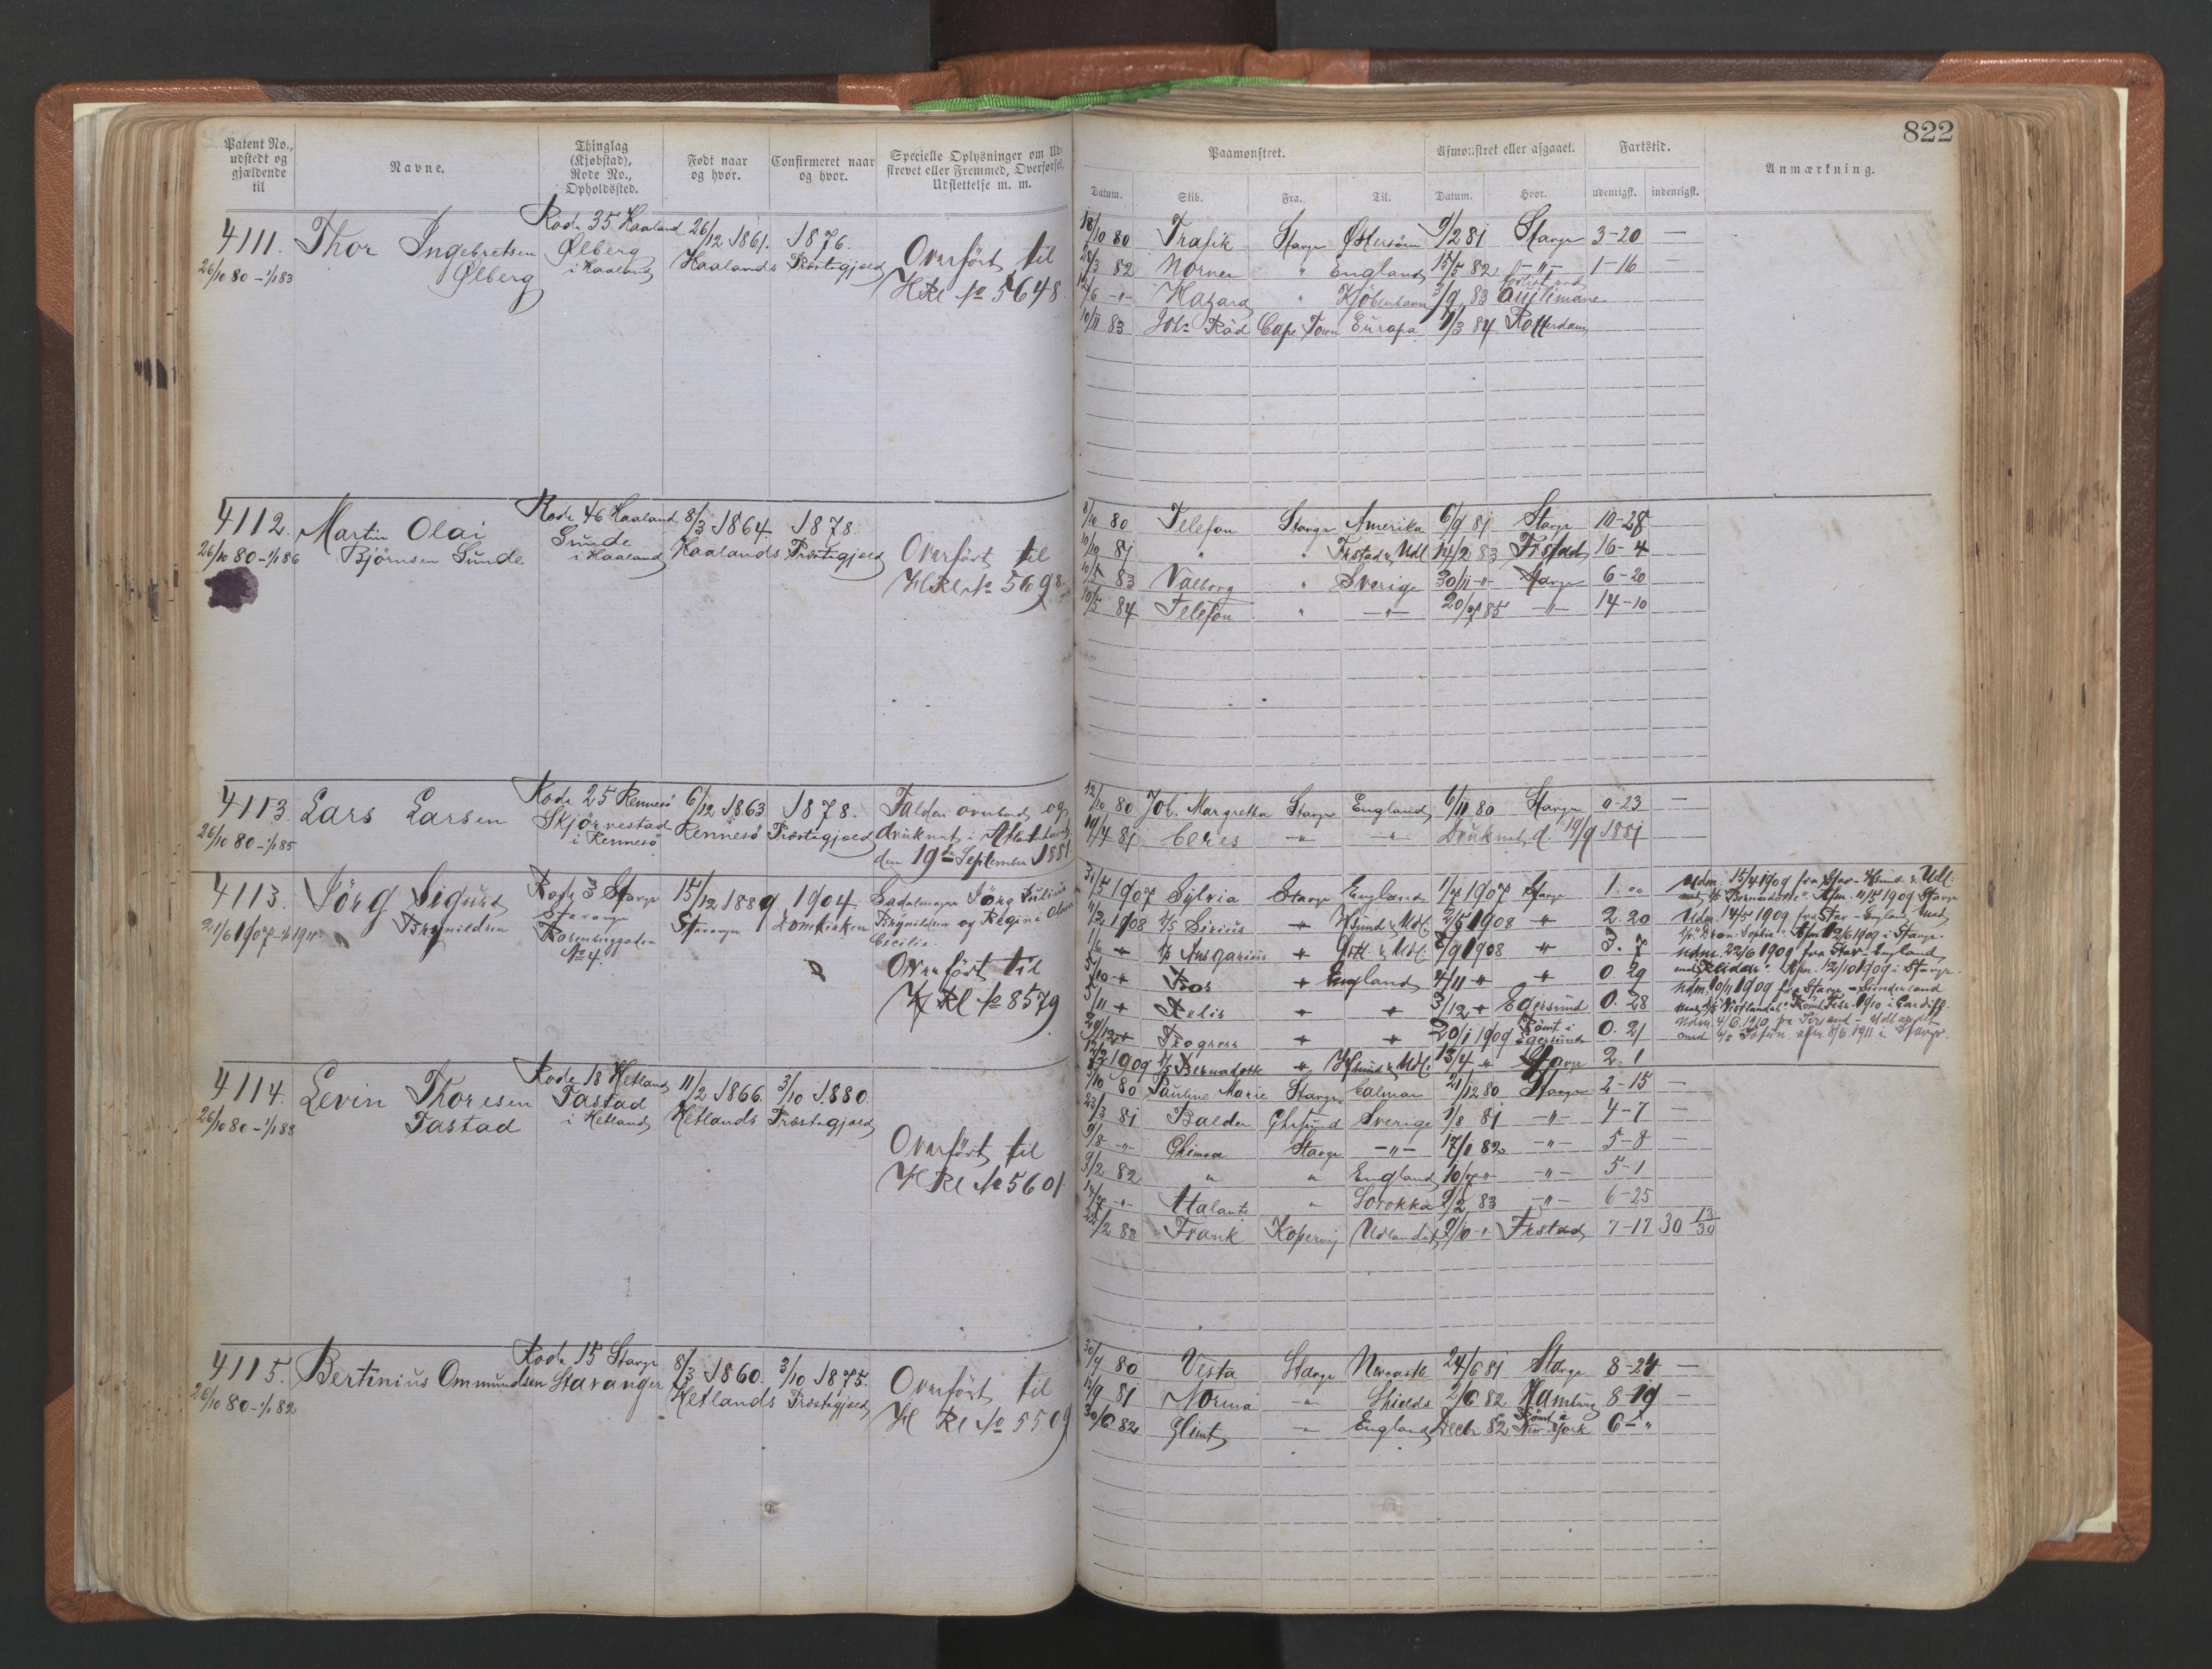 822
Patent No., udstedt og gjældende til
Navne.
Thinglag (Kjøbstad), Rode No., Opholdssted.
Født naar og hvor.
Confirmeret naar og hvor.
Specielle Oplysninger om Ud-
skrevet eller Fremmed, Overførsel,
Udslettelse m. m.
Paamønstret.
Afmønstret eller afgaaet.
Fartstid.
Anmærkning.
Datum. Skib. Fra. Til. Datum. Hvor. udenrigsk. indenrigsk.
4111. Thor Ingebretsen Rode 35 Haaland 26/12 1861. 1876.
26/10 80 - 1/1 83 Ølberg Ølberg i Haaland Haalands Præstegjæld
Overført til
H Rl No 5648.
18/10 80 Trafik Stavgr Østersøen 9/2 81 Stavgr 3-20 —
28/3 82 Norner " England 15/5 82 -"- 1-16 —
12/6 -"- Hazard " Kjöbenhavn 3/9 83 forlist ved
Quilimane
10/11 83 Joh. Räd Cape Town Europa 9/3 84 Rotterdam
4112. Martin Olai Rode 46 Haaland 8/3 1864. 1878.
26/10 80 - 1/1 86 Bjørnsen Sunde Sunde i Haaland Haalands Præstegjæld
Overført til
H Rl No 5698.
8/10 80 Telefon Stavgr Amerika 6/9 81 Stavgr 10-28
10/10 81 " " Frstad & Udl 14/2 83 Frstad 16-4
10/5 83 Valborg " Sverige 30/11 -"- Stavgr 6-20
10/5 84 Telefon " -"- 20/7 85 -"- 14-10
4113. Lars Larsen Rode 25 Rennesö 6/12 1863 1878.
26/10 80 - 1/1 85 Skjörvestad i Rennesö Rennesö Præstegjæld
Falden overbord og
druknet i Atlanterhavet
den 19de September 1881
12/10 80 Joh. Margretha Stavgr England 6/11 80 Stavgr 0-23 —
19/4 81 Ceres -"- -"- Druknet d. 19/9 1881
4113. Jörg Sigurd Rode 3 Stavgr 15/12 1889. 1904.
21/6 1907 - 1/1 1911. Brynildsen Stavanger Stavanger Domkirken
Rosenberggaden
No 4.
Sadelmager Jörg Julius
Brynildsen og Regine Olava
Cecilie
Overført til
H Rl No 8579
31/5 1907 Sylvia Stavgr England 1/7 1907 Stavgr 1."
11/2 1908 D/S Sirius " Hsund & Udl. 2/5 1908 " 2. 20
1/6 " D/S Ansgarius " Gotl. & Udl. 7/9 1908 " 3. 7
5/10 " Bros " England 4/11 " " 0 29
5/11 " Relis " " 3/12 " Egersund 0. 28
29/12 " Progress " " 20/1 1909 Römt i
Egersund 0. 21
12/2 1909 D/S Bernadotte " Hsund & Udl. 13/4 " Stavgr 2. 1
Udm. 15/4 1909 fra Stav - Hsund & Udl.
med D/S "Bernadotte". Afm. 11/5 1909 Stavgr
Udm. 14/5 1909 fra Stav - England med
D/S "Dron. Sophie". Afm. 12/6 1909 i Stavgr.
Udm. 22/6 1909 fra Stav - England
Afm. 12/10 1909 i Stavgr.
Udm. 10/11 1909 fra Stavgr - Sunderland
med D/S "Vestlandet". Römt Febr. 1910 i Cardiff.
Udm. 4/6 1910 fra - Udlandet
med afm. 8/6 1911 i Stavgr.
4114. Levin Thoresen Rode 18 Hetland 11/2 1866. 3/10 1880.
26/10 80 - 1/1 88 Tastad Tastad i Hetland Hetlands Præstegjæld
Overført til
H Rl No 5601.
9/10 80 Pauline Marie Stavgr Calmar 21/12 80 Stavgr 2-15 —
23/3 81 Balder Chrsund Sverige 1/8 81 -"- 4-7 —
9/8 -"- Chimra Stavgr -"- 17/1 82 -"- 5-8 —
9/2 82 " " England 10/7 " -"- 5-1
14/7 -"- Atalante " Sorokka 9/2 83 -"- 6-25
22/2 83 Frank Kopervig Udlandet 9/10 -"- Frstad 7-17 30 13/30
4115. Bertinius Ommundsen Rode 15 Stavgr 8/3 1860. 3/10 1875.
26/10 80 - 1/1 82 Stavanger Hetlands Præstegjæld
Overført til
H Rl No 5509
30/9 80 Vesta Stavgr Newcastle 24/6 81 Stavgr 8-24 —
13/9 81 Norma -"- Shields 2/6 82 Hamburg 8-19 —
30/6 82 Glimt -"- England Decbr 82 Römt i
New York 6-"